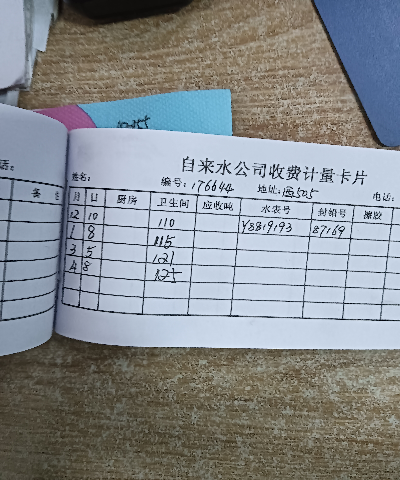 自来水公司收费计量卡片
话:
姓名: 编号: 176644 地址: 电话:
月 日 厨房 卫生间 应收吨 水表号 封铅号 撤胶
12 10 110 Y3819193 87169
1 8 115
3 5 121
4 8 125